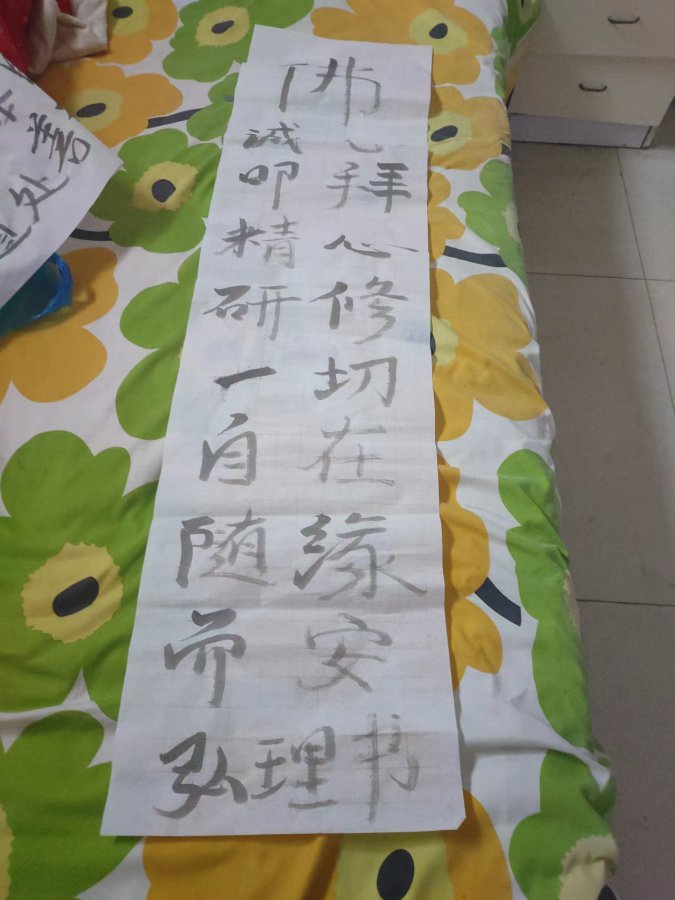 佛
诚心
叩拜
精心
研修
一切
自在
随缘
而安
弘理书
善
处